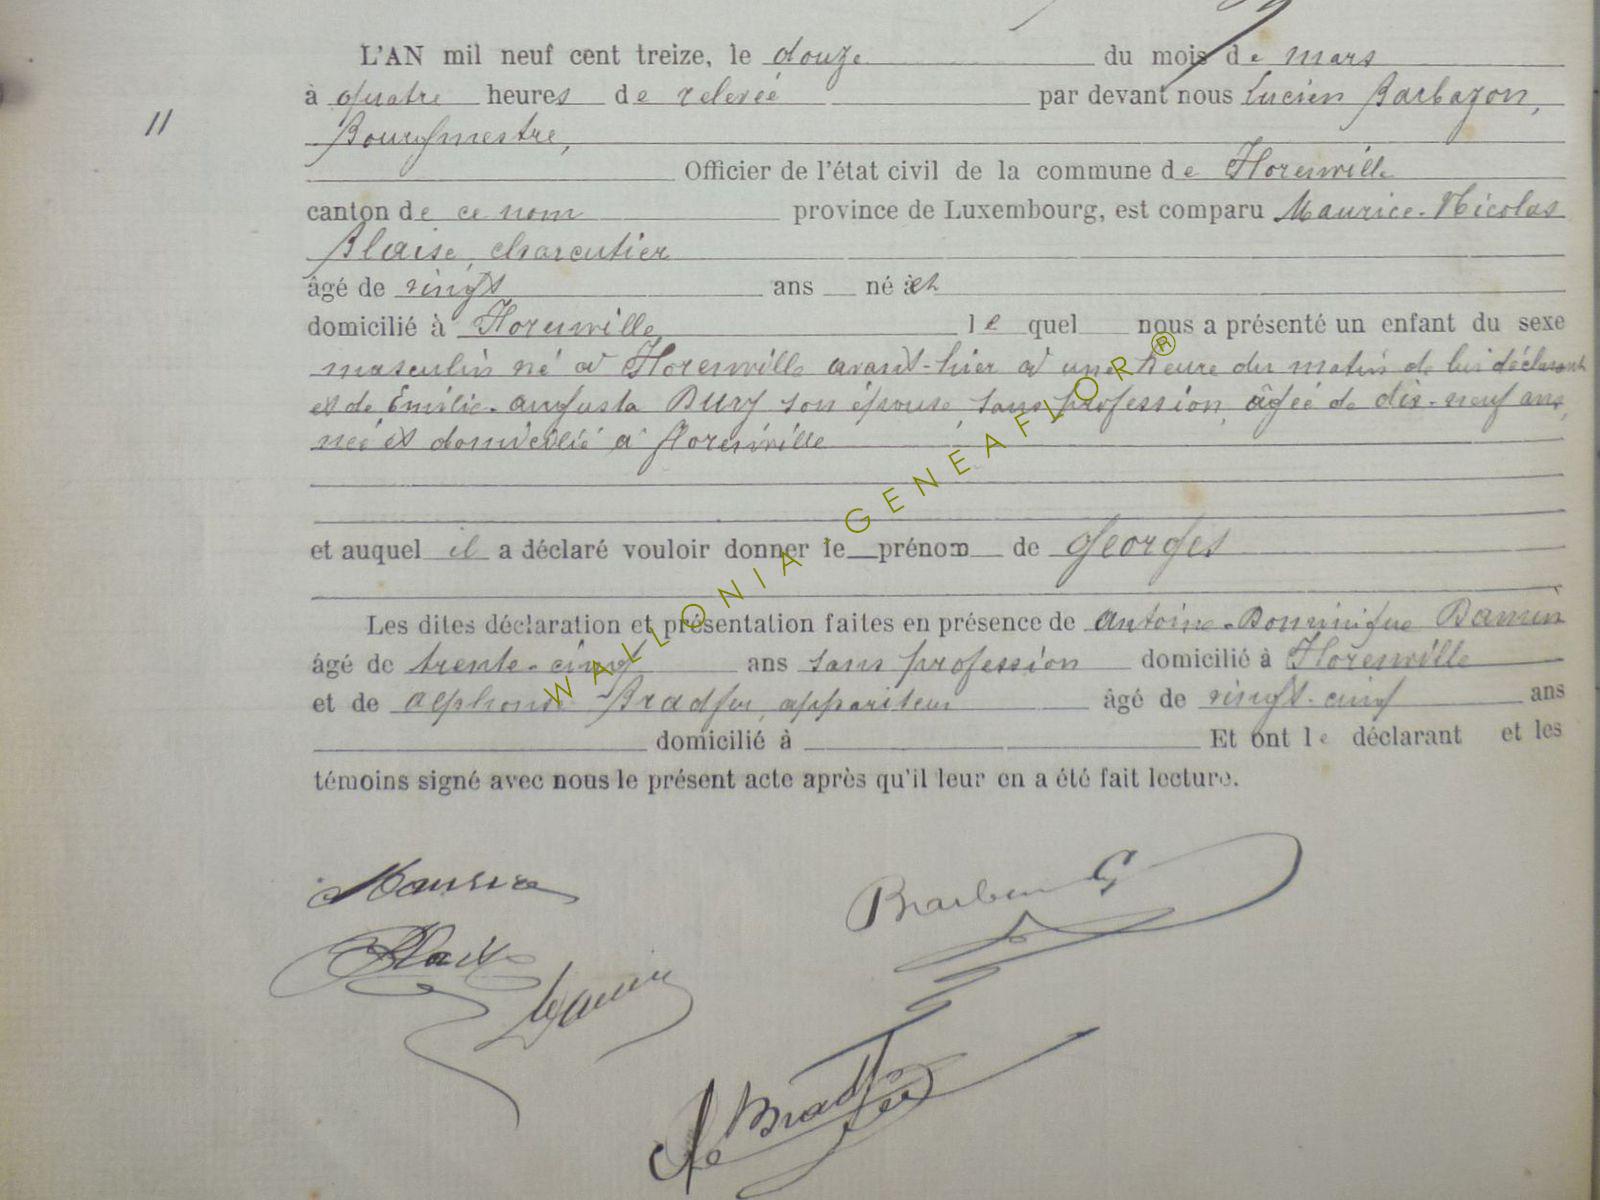 L'AN mil neuf cent treize, le douze du mois de mars
à quatre heures de relevée par devant nous Lucien Barbazon,
11
Bourgmestre,
Officier de l'état civil de la commune de Florenville
canton de ce nom province de Luxembourg, est comparu Maurice-Nicolas
Blaise, charcutier
âgé de vingt ans né à et
domicilié à Florenville lequel nous a présenté un enfant du sexe
masculin né à Florenville avant-hier à une heure du matin de lui déclarant
et de Emilie-Augusta Dury son épouse sans profession, âgée de dix-neuf ans,
née et domiciliée à Florenville
et auquel il a déclaré vouloir donner le prénom de Georges
Les dites déclaration et présentation faites en présence de Antoine-Dominique Damin
âgé de trente-cinq ans sans profession domicilié à Florenville
et de Alphonse Bradfer, appariteur âgé de vingt-cinq ans
domicilié à Et ont le déclarant et les
témoins signé avec nous le présent acte après qu'il leur en a été fait lecture.
WALLONIA-GENEAFLOR®
Maurice
Blaise
Damin
Bradfer